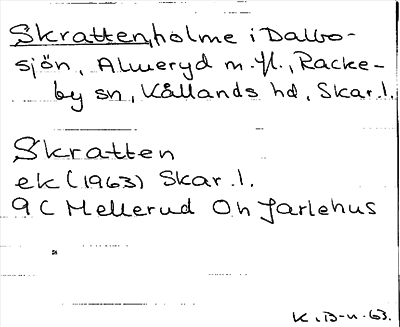 Skratten, holme i Dalbo-
sjön, Almeryd m.fl., Racke-
by sn, Kållands hd, Skar.l.
Skratten
ek (1963) Skar.l.
9C Mellerud Oh Jarlehus
K.B-n.63.